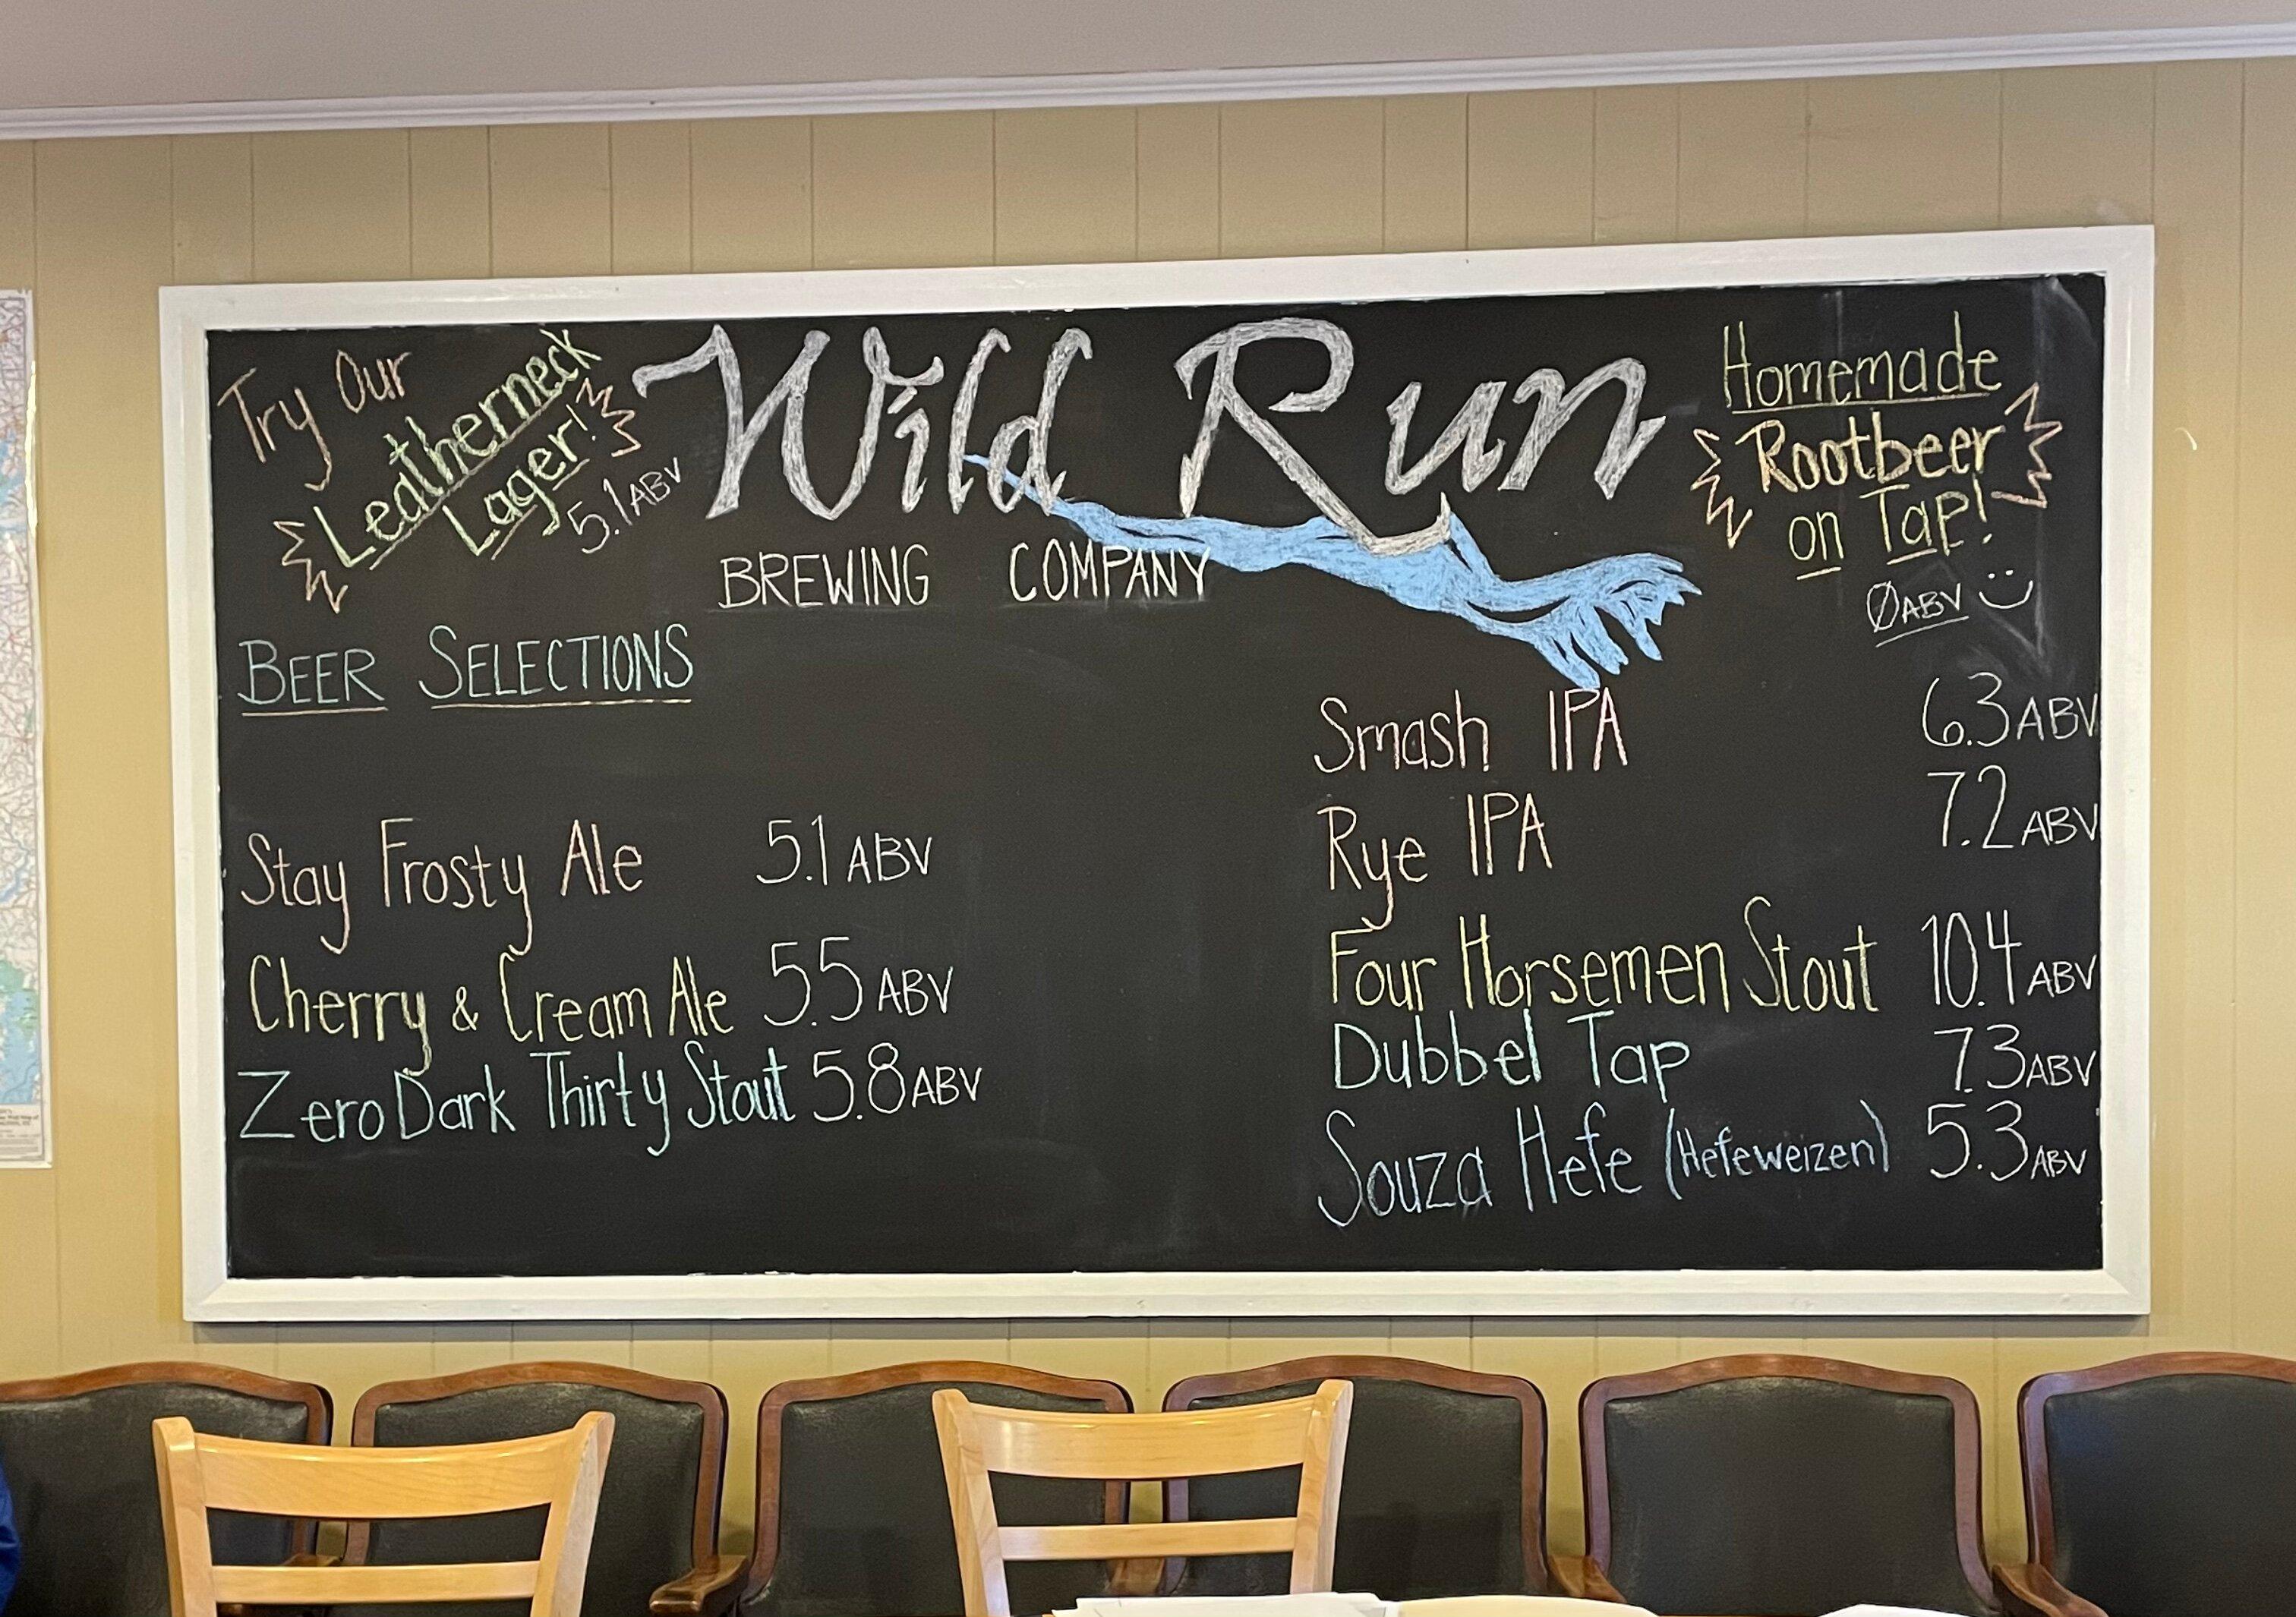 Try Our
Leatherneck
Lager!
5.1 ABV
Wild Run
BREWING COMPANY
Homemade
Rootbeer
on Tap!
ØABV
BEER SELECTIONS
Stay Frosty Ale 5.1 ABV
Cherry & Cream Ale 5.5 ABV
Zero Dark Thirty Stout 5.8 ABV
Smash IPA 6.3 ABV
Rye IPA 7.2 ABV
Four Horsemen Stout 10.4 ABV
Dubbel Tap 7.3 ABV
Souza Hefe (Hefeweizen) 5.3 ABV